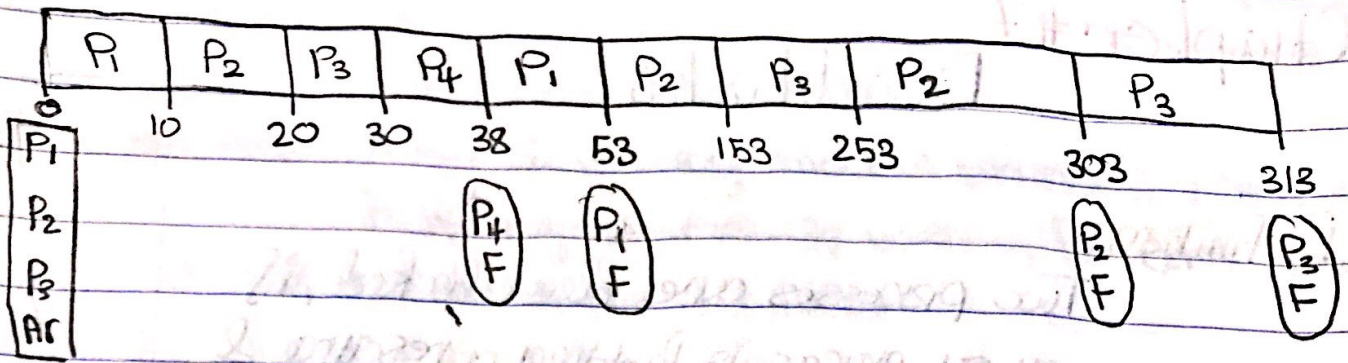 P1 P2 P3 P4 P1 P2 P3 P2 P3
0 10 20 30 38 53 153 253 303 313
P1
P2
P3
Ar
P4
F
P1
F
P2
F
P3
F